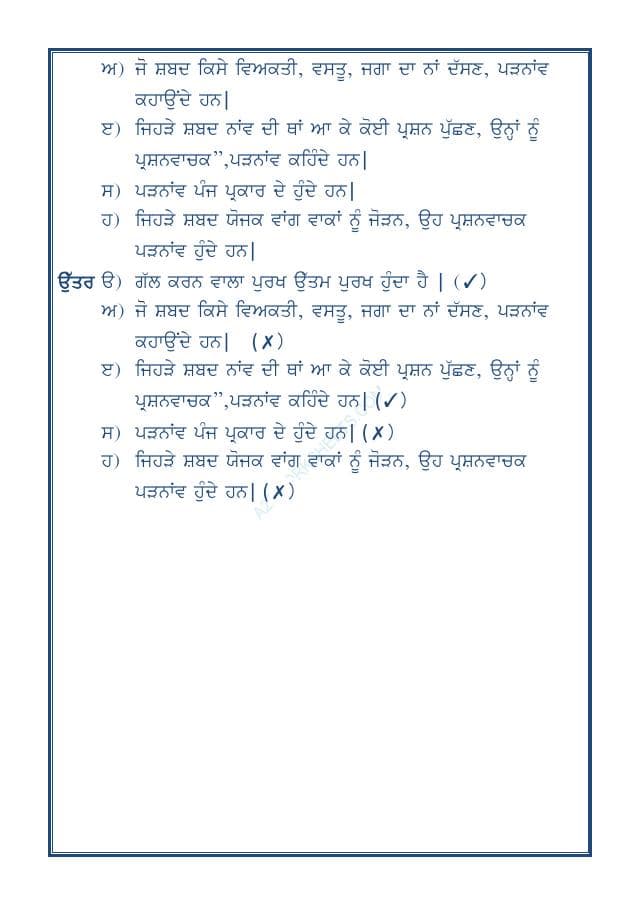 ਅ) ਜੋ ਸ਼ਬਦ ਕਿਸੇ ਵਿਅਕਤੀ, ਵਸਤੂ, ਜਗਾ ਦਾ ਨਾਂ ਦੱਸਣ, ਪੜਨਾਂਵ
ਕਹਾਉਂਦੇ ਹਨ|
ੲ) ਜਿਹੜੇ ਸ਼ਬਦ ਨਾਂਵ ਦੀ ਥਾਂ ਆ ਕੇ ਕੋਈ ਪ੍ਰਸ਼ਨ ਪੁੱਛਣ, ਉਨ੍ਹਾਂ ਨੂੰ
ਪ੍ਰਸ਼ਨਵਾਚਕ”,ਪੜਨਾਂਵ ਕਹਿੰਦੇ ਹਨ|
ਸ) ਪੜਨਾਂਵ ਪੰਜ ਪ੍ਰਕਾਰ ਦੇ ਹੁੰਦੇ ਹਨ|
ਹ) ਜਿਹੜੇ ਸ਼ਬਦ ਯੋਜਕ ਵਾਂਗ ਵਾਕਾਂ ਨੂੰ ਜੋੜਨ, ਉਹ ਪ੍ਰਸ਼ਨਵਾਚਕ
ਪੜਨਾਂਵ ਹੁੰਦੇ ਹਨ|
ਉੱਤਰ ੳ) ਗੱਲ ਕਰਨ ਵਾਲਾ ਪੁਰਖ ਉੱਤਮ ਪੁਰਖ ਹੁੰਦਾ ਹੈ | (✓)
ਅ) ਜੋ ਸ਼ਬਦ ਕਿਸੇ ਵਿਅਕਤੀ, ਵਸਤੂ, ਜਗਾ ਦਾ ਨਾਂ ਦੱਸਣ, ਪੜਨਾਂਵ
ਕਹਾਉਂਦੇ ਹਨ| (✗)
ੲ) ਜਿਹੜੇ ਸ਼ਬਦ ਨਾਂਵ ਦੀ ਥਾਂ ਆ ਕੇ ਕੋਈ ਪ੍ਰਸ਼ਨ ਪੁੱਛਣ, ਉਨ੍ਹਾਂ ਨੂੰ
ਪ੍ਰਸ਼ਨਵਾਚਕ”,ਪੜਨਾਂਵ ਕਹਿੰਦੇ ਹਨ| (✓)
ਸ) ਪੜਨਾਂਵ ਪੰਜ ਪ੍ਰਕਾਰ ਦੇ ਹੁੰਦੇ ਹਨ| (✗)
ਹ) ਜਿਹੜੇ ਸ਼ਬਦ ਯੋਜਕ ਵਾਂਗ ਵਾਕਾਂ ਨੂੰ ਜੋੜਨ, ਉਹ ਪ੍ਰਸ਼ਨਵਾਚਕ
ਪੜਨਾਂਵ ਹੁੰਦੇ ਹਨ| (✗)